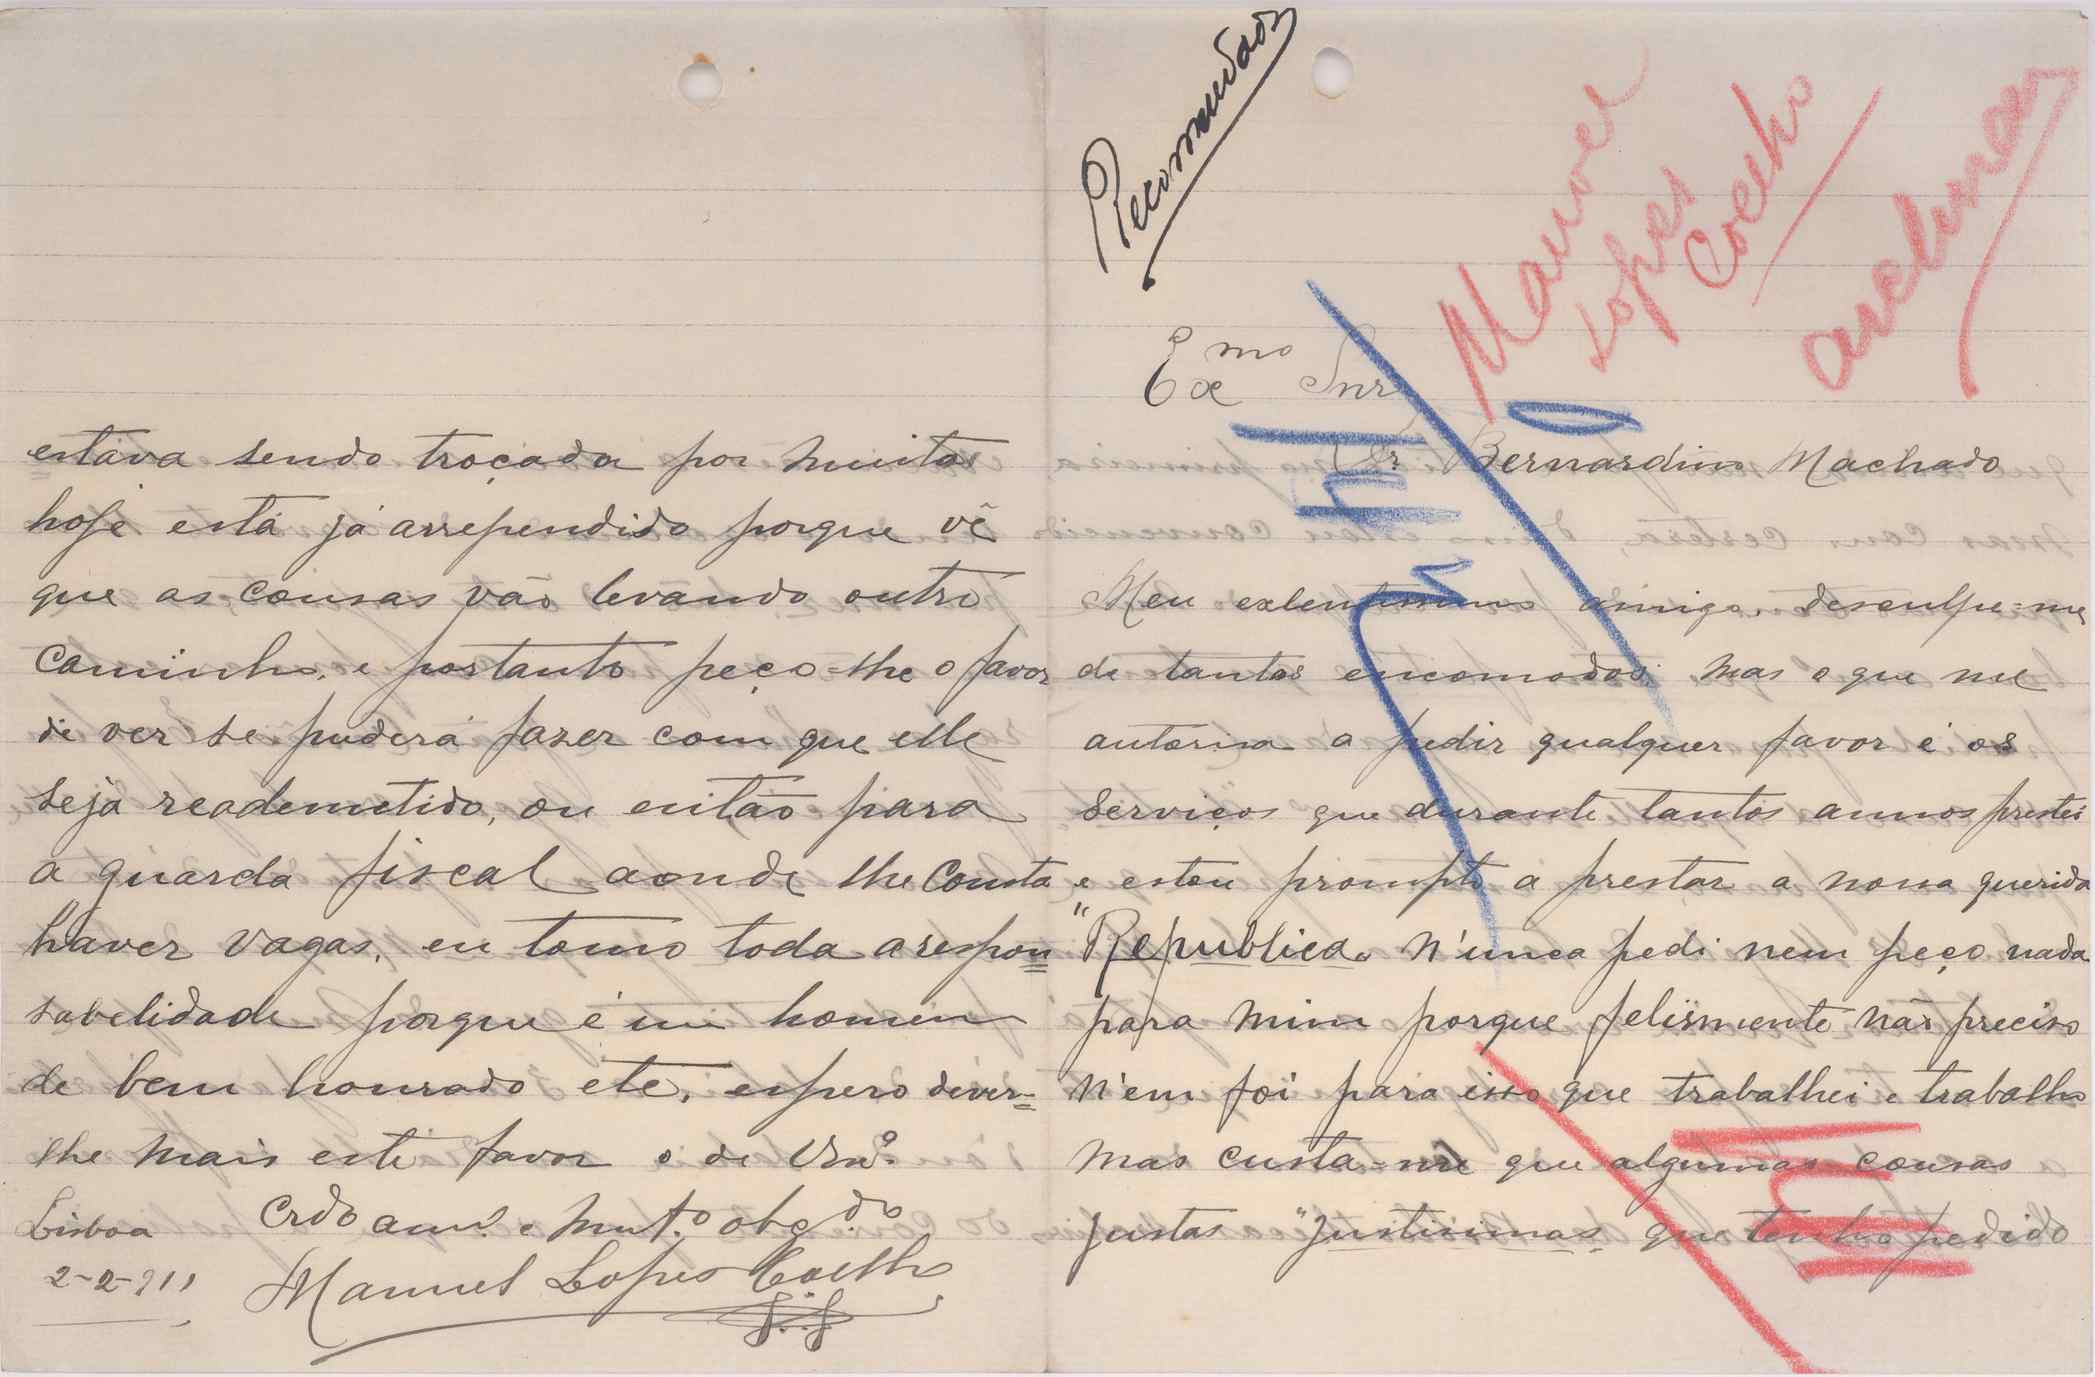 Recomendados
Manoel
Lopes
Coelho
Exmo Snr
Dr Bernardino Machado
Meu exlentissimo amigo, desculpe-me
de tantos encomodos, mas o que me
autorisa a pedir qualquer favor é os
serviços que durante tantos annos prestei
e estou prompto a prestar a nossa querida
"Republica. N'unca pedi nem peço nada
para mim porque felismente não preciso
n'em foi para isso que trabalhei e trabalho
mas custa-me que algumas cousas
justas "justissimas, que tenho pedido
estava sendo troçada por muitos
hoje está já arrependido porque vê
que as cousas vão levando outro
caminho, e portanto peço-lhe o favor
de ver se poderá fazer com que elle
seja readmetido, ou então para
a guarda fiscal aonde lhe consta
haver vagas, eu tomo toda a respon=
sabelidade porque é um homem
de bem honrado etc, espero dever=
lhe mais este favor e de
Crdo amo e muto obgdo
Lisboa
2-2-911
Manuel Lopes Coelho